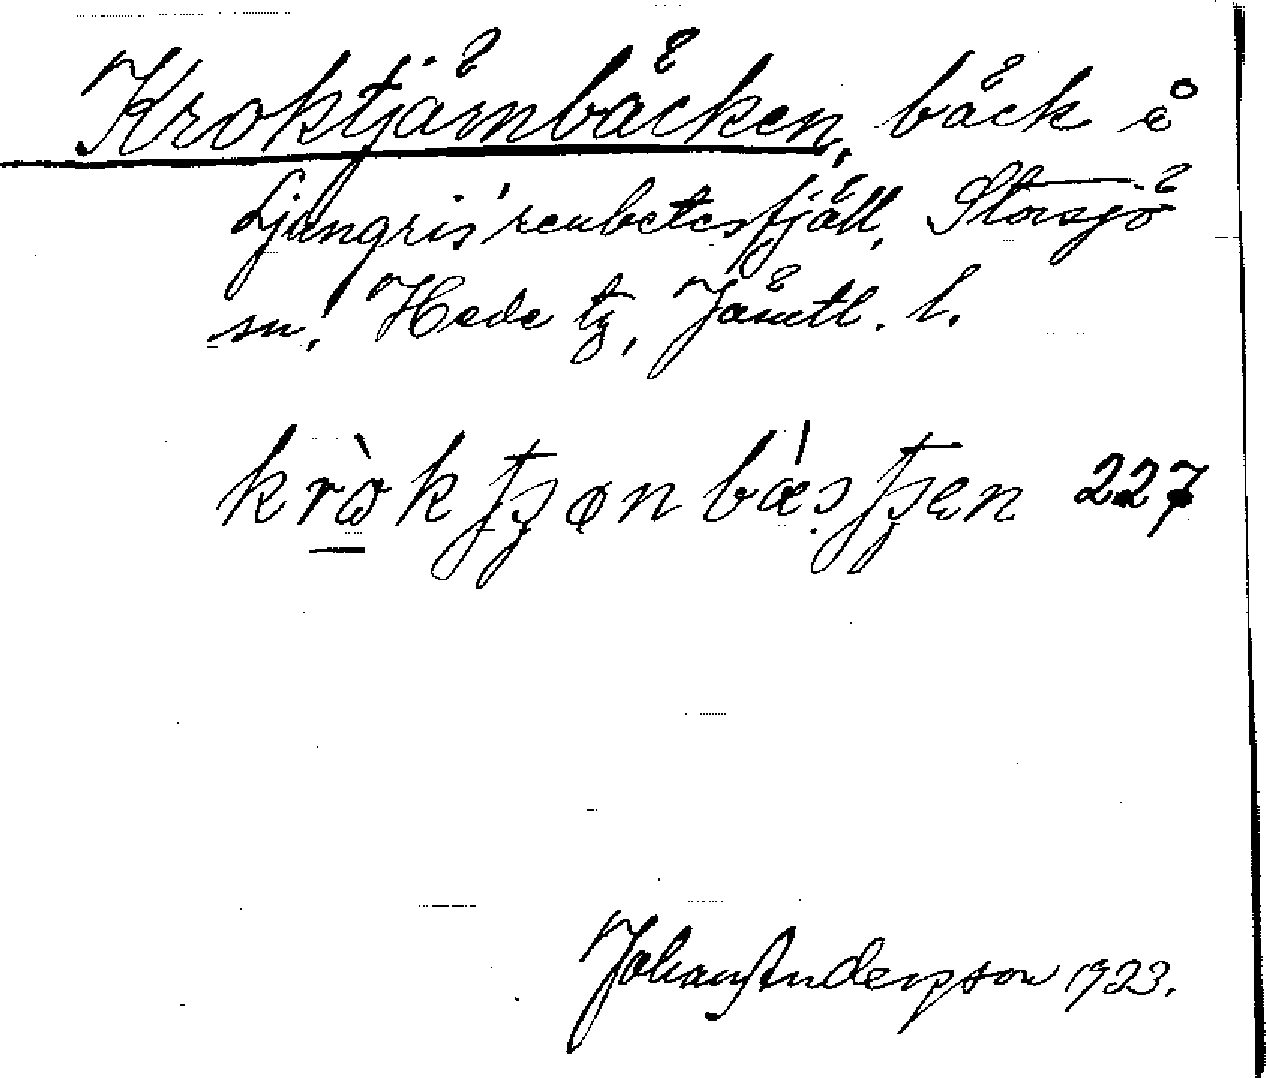 Kroktjärnbäcken, bäck å
Ljungris' renbetesfjäll, Storsjö
sn, Hede tg, Jämtl. l.
227
Johan Andersson 1923.